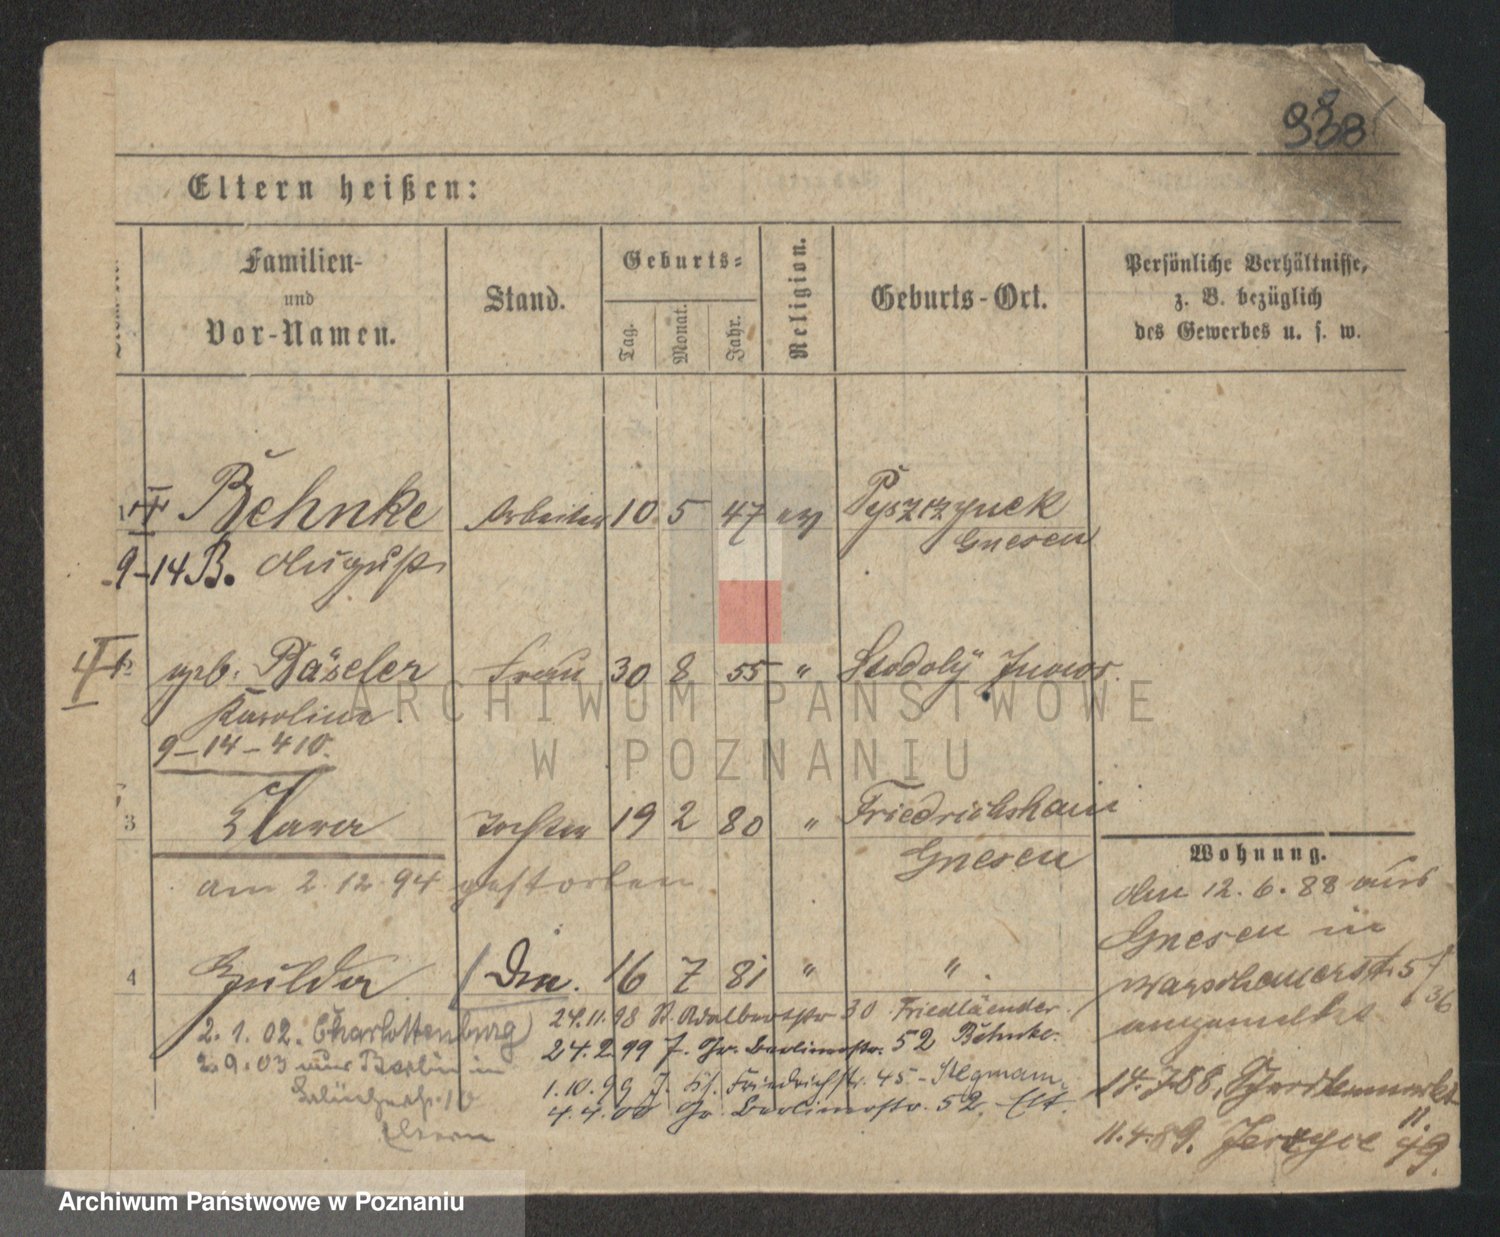 938
Eltern heißen:
Familien-
und
Vor-Namen.
Stand.
Geburts-
Tag.
Monat.
Jahr.
Religion.
Geburts-Ort.
Persönliche Verhältnisse,
z. B. bezüglich
des Gewerbes u. s. w.
Behnke Arbeiter 10 5 47 ev Pyszczynek
Gnesen
9-14 B. August
geb. Bäseler Frau 30 8 55 " Stodoly Inowr.
Karoline
9-14-410.
3 Clara Tochter 19 2 80 " Friedrichshain
Gnesen
am 2.12.94 gestorben
Wohnung.
den 12.6.88 aus
Gnesen in
Warschauerstr 5/36
angemeldet
4 Hulda Die. 16 7 81 " "
2.1.02. Charlottenburg
2.9.03 aus Berlin in
Eltern
24.11.98 St. Adalbertstr 30 Friedlaender.
24.2.99 J. Gr. Berlinerstr. 52 Behnke.
1.10.99 J. Kl. Friedrichstr. 45 - Stegmann
4.4.00 Gr. Berlinerstr. 52. Elt.
14.7.88,
11.4.89. Jerzyce 49.
ARCHIWUM PAŃSTWOWE
W POZNANIU
Archiwum Państwowe w Poznaniu